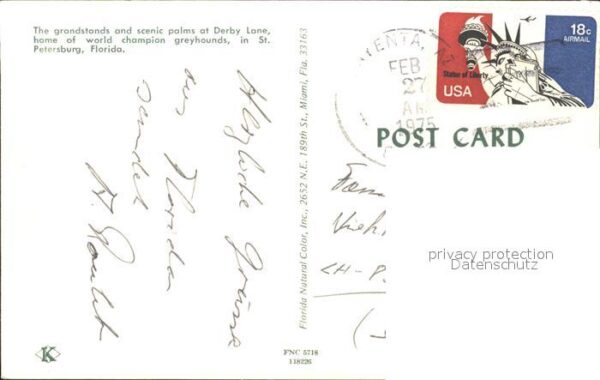 The grandstands and scenic palms at Derby Lane,
home of world champion greyhounds, in St.
Petersburg, Florida.
Herzliche Grüsse
aus Florida
sendet
Florida Natural Color, Inc., 2652 N.E. 189th St., Miami, Fla. 33163
FEB
27
1975
18c
AIRMAIL
Statue of Liberty
USA
POST CARD
CH-
privacy protection
Datenschutz
K
FNC 5718
118226